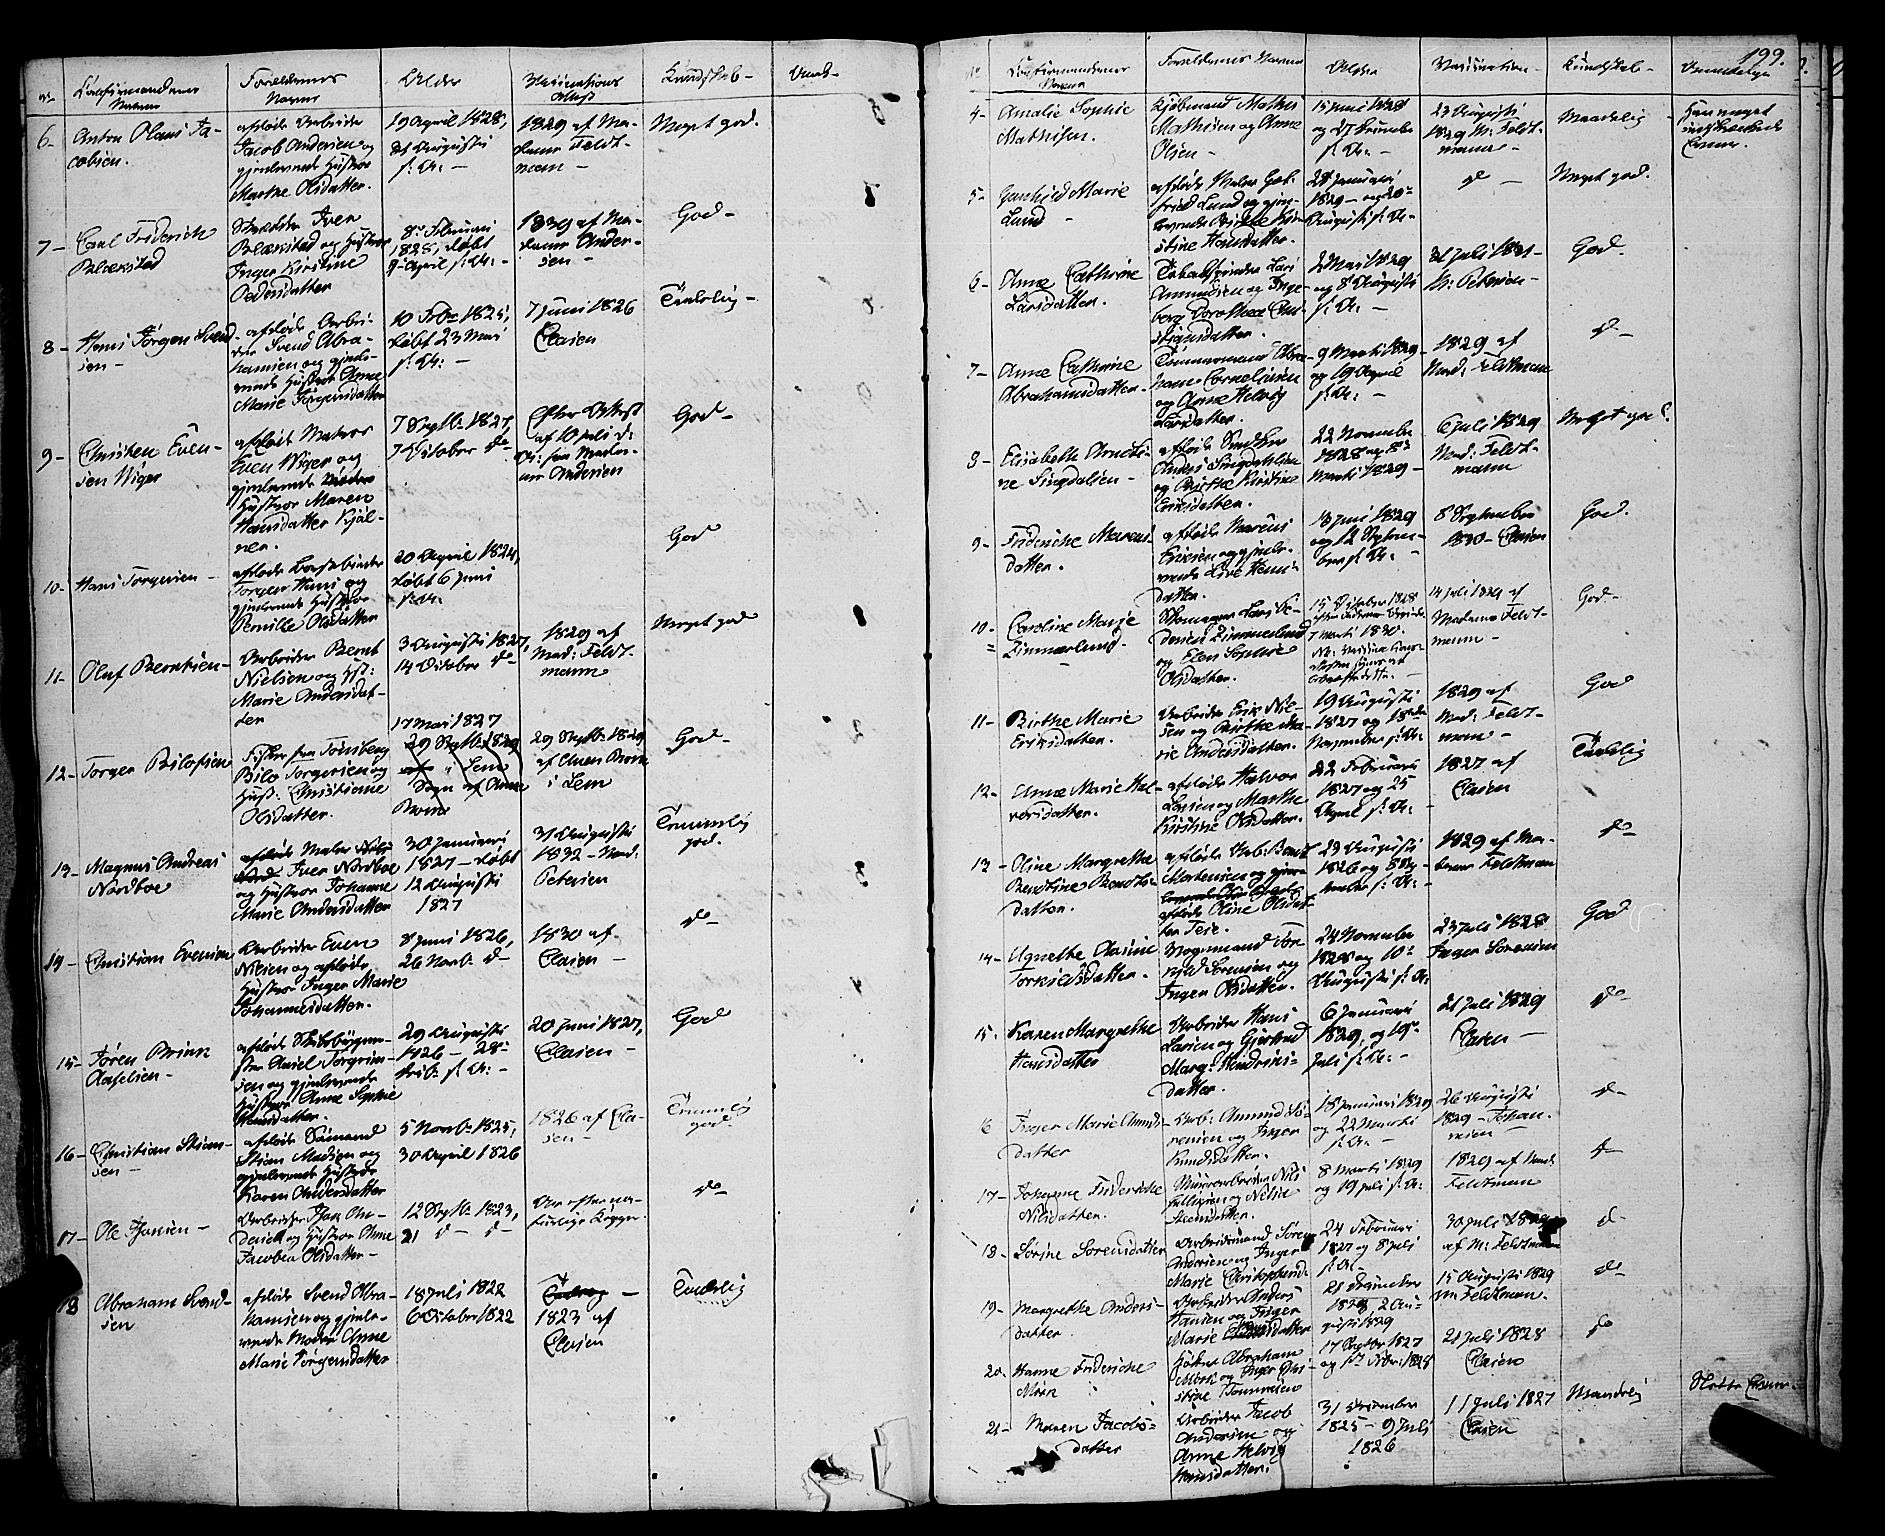 Confirmandernes
Navne
Foreldrenes
Navne
Alder
Vaccinations
Attest
Kundskab
6- Anton Olaus Ja-
cobsen.
afdøde Arbeider
Jacob Andersen og
gjenlevende Hustroe
Marthe Olsdatter.
19 April 1828,
Augusti
1829 af Ma-
dame Feldt-
mann -
Meget god.
7- Carl Friderich
Blækstad
Skrædder Iver
Blækstad og Hustroe
Inger Kirstine
Pedersdatter
8de Februari
1828, døbt
7- April
1829 af Ma-
dame Ander-
sen -
God -
8- Hans Jørgen Svend-
sen -
afdøde Arbei-
der Svend Abra-
hamsen og gjenle-
vende Hustroe Anne
Marie Jørgensdatter
10 Febr 1825,
døbt 23 Mai
7 Juni 1826
Clasen
Taalelig -
9- Christen Even-
sen Wiger
afdøde Matros
Even Wiger og
gjenlevende
Hustroe Maren
Hansdatter Kjøl-
ner.
7 Septbr 1827,
7 October do
Efter Attest
af 10 Juli
fra Mada-
me Andersen
God -
10- Hans Torgersen -
Torger Hans og
gjenlevende Hustroe
Pernille Olsdatter
20 April 1824,
døbt 6 Juni
God
11- Oluf Berntsen -
Arbeider Bernt
Nielsen og Hust:
Marie Andersdat-
ter
3 Augusti 1827,
14 October do
1829 af
Mad: Feldt-
mann
Meget god
12- Torger Bilofsen
Fisker fra Tønsberg
Bilo Torgersen og
Hust: Christiane
Olsdatter.
17 Mai 1827
29 Septbr 1829
i Sem
Sogn af Anne
Brom
29 Septbr 1829
af Anen Brom
i Sem
God -
13- Magnus Andreas
Nordboe
afdøde Maler
Iver Nordboe
og Hustroe Johanne
Marie Andersdatter
30 Januari
1827 - døbt
12 Augusti
1827
31 Augusti
1832 - Mad:
Petersen
Temmelig
god.
14- Christian Evensen
Arbeider Even
Nilsen og afdøde
Hustroe Inger Marie
Johannesdatter.
8 Juni 1826,
26 Novb: do
1830 af
Clasen -
do
15- Jøren Brinn
Axelsen -
afdøde Skibbygme-
ster Axel Torger-
sen og gjenlevende
Hustroe Anne Sophie
Hansdatter.
29 Augusti
1826 - 28
20 Juni 1827,
Clasen -
God
16- Christian Stian-
sen -
afdøde Sømand
Stian Madsen og
gjenlevende Hustroe
Karen Andersdatter
5 Novb: 1825,
30 April 1826
1826 af Cla-
sen -
Temmelig
god -
17- Ole Hansen -
Arbeider Hans An-
dersen og Hustroe Anne
Jacobea Olsdatter -
12 Septbr 1823,
21 do do
Har efter na-
turlige Kopper.
do
18 Abraham Svend-
sen
afdøde Svend Abra-
hamsen og gjenle-
vende Moder Anne
Marie Jørgensdatter
18 Juli 1822
6 October 1822
1823 af
Clasen
Taalelig
199.
No Confirmandernes
Navne
Foreldrenes Navne
Alder
Vaccination
Kundskab
4- Amalie Sophie
Mathisen.
Kjøbmand Mathis
Mathisen og Anne
Olsen -
15 Juni 1828
23 Augusti
1829 M: Feldt-
mann -
Maadelig
Har meget
indskrænkede
Evner.
5- Gunhild Marie
Lund -
afdøde Maler Got-
fried Lund og gjen-
levende Birthe Kir-
stine Hansdatter.
28 Januari
1829 - og 20
Augusti
do -
Meget god.
6- Anne Cathrine
Larsdatter.
Tobaksspinder Lars
Amundsen og Inge-
borg Dorothea Chri-
stiansdatter.
2 Mai 1829
og 8 Augusti
21 Juli 1831
M: Petersen -
God.
7- Anne Cathrine
Abrahamsdatter.
Tømmermand Abra-
ham Corneliusen
og Anne Helvig
Larsdatter.
9 Marti 1829
og 19 April
1829 af
Mad: Feldtmann
do -
8- Elisabeth Arneti-
ne Singdalsen -
Anders Singdahlsen
og Birthe Kirstine
Eriksdatter.
22 November
1828 og 8
Marti 1829 -
6 Juli 1829
Mad: Feldt-
mann
Meget god
9- Friderikke Marcus-
datter.
afdøde Marcus
Ericsen og gjenle-
vende Live Hans-
datter.
18 Juni 1829
og 12 Septem-
ber
8 September
1830 - Clasen
God.
10- Caroline Marie
Zimmerlund -
Zimmerlund
og Elen Sophie
Olsdatter.
15 October 1828
7 Marti 1830.
14 Juli 1829 af
Madame Feldt-
mann -
God.
11- Birthe Marie
Eriksdatter.
Arbeider Erik Nil-
sen og Birthe Ma-
rie Andersdatter.
19 Augusti
1827 og 18de
November
1829 af
Mad: Feldt-
mann -
God
12- Anne Marie Hal-
vorsdatter.
afdøde Halvor
Larsen og Marthe
Kirstine Olsdatter.
22 Februari
1827 og 25
April
1827 af
Clasen
Taalelig
13- Oline Margrethe
Berntine Berndts-
datter.
Mortensen og gjen-
afdøde Oline Olsdat-
ter Teie.
23 Augusti
1826 og
1829 af Ma-
dame Feldtmann
do
14- Agnethe Hasine
Torkildsdatter.
Vognmand Tor-
kild Sørensen og
Inger Olsdatter.
24 November
1828 og 10
Augusti
23 Juli 1828
Inger Sørensen
God
15- Karen Margrethe
Hansdatter
Arbeider Hans
Larsen og Gjertrud
Marg: Hendriks-
datter.
6 Januari
1829, og 19
Juli
21 Juli 1829
Clasen -
do
6 Inger Marie Amunds-
datter
Arb: Amund Sø-
rensen og Inger
Knudsdatter.
18 Januari 1829
og 22 Marti
26 Augusti
1829 - Johan-
nesen -
do
17- Johanne Friderikke
Nilsdatter.
Nils
8 Marti 1829
og 19 Juli
1829 af Mad:
Feldtmann
do
18- Sørine Sørensdatter
Arbeidsmand Søren
Andersen og Inger
Marie Christophersd:
24 Februari
1827 og 8 Juli
30 Juli 1829
af M: Feldtmann
do
19- Margrethe Anders-
datter
Arbeider Anders
Hansen og Inger
Marie
21 December
1828 2 Au-
gusti 1829
15 Augusti 1829
M: Feldtmann.
do
20- Hanne Friderikke
Mørk
Abraham
Mørk og Inger Chri-
stine Tommesen
17 October 1827
og 17 Febr: 1828
21 Juli 1828
Clasen
do
21- Maren Jacobs-
datter
Arbeider Jacob
Andersen og
Anne Helvig
Hansdatter.
31 December
1825 - 9 Juli
1826
11 Juli 1827
Clasen
Maadelig
Slette Evner.